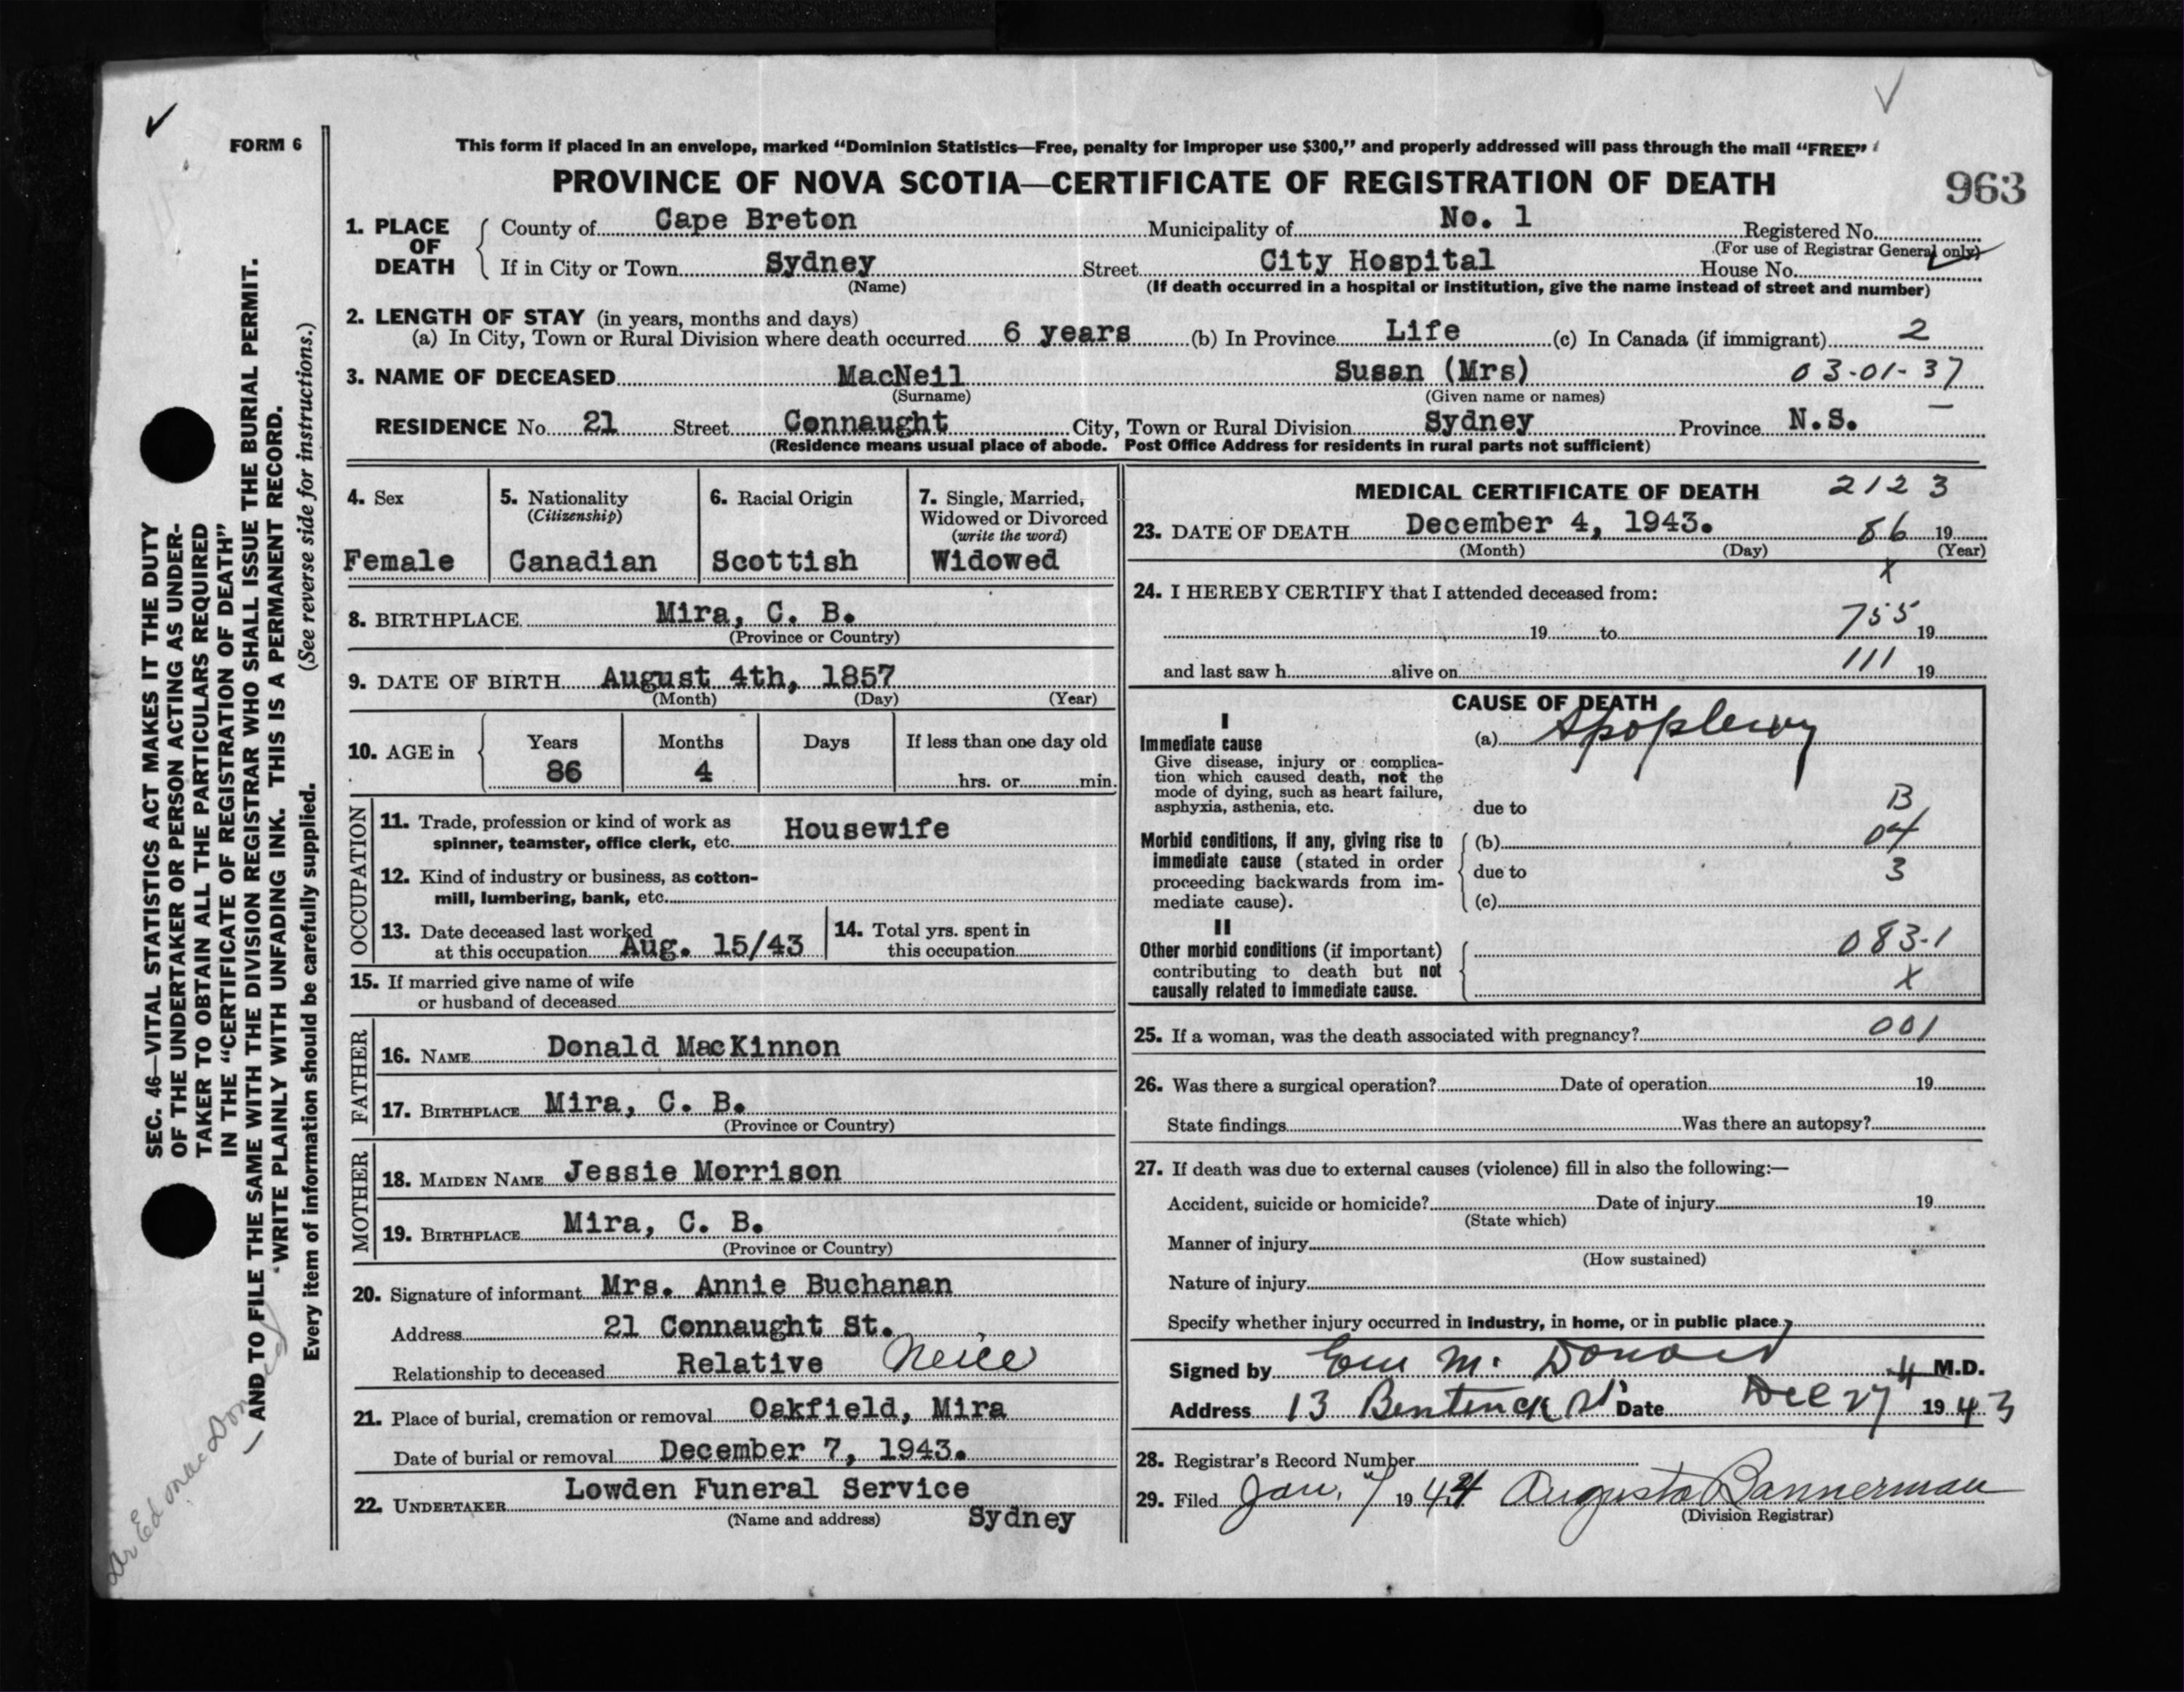 FORM 6
This form if placed in an envelope, marked “Dominion Statistics—Free, penalty for improper use $300,” and properly addressed will pass through the mail “FREE”
PROVINCE OF NOVA SCOTIA—CERTIFICATE OF REGISTRATION OF DEATH
963
1. PLACE OF DEATH
County of Cape Breton Municipality of No. 1 Registered No.
(For use of Registrar General only)
If in City or Town Sydney Street City Hospital House No.
(Name) (If death occurred in a hospital or institution, give the name instead of street and number)
2. LENGTH OF STAY (in years, months and days)
(a) In City, Town or Rural Division where death occurred 6 years (b) In Province Life (c) In Canada (if immigrant) 2
3. NAME OF DECEASED MacNeil Susan (Mrs) 03-01-37
(Surname) (Given name or names)
RESIDENCE No. 21 Street Connaught City, Town or Rural Division Sydney Province N.S.
(Residence means usual place of abode. Post Office Address for residents in rural parts not sufficient)
4. Sex
Female
5. Nationality
(Citizenship)
Canadian
6. Racial Origin
Scottish
7. Single, Married,
Widowed or Divorced
(write the word)
Widowed
8. BIRTHPLACE Mira, C. B.
(Province or Country)
9. DATE OF BIRTH August 4th, 1857
(Month) (Day) (Year)
10. AGE in
Years Months Days If less than one day old
86 4 hrs. or min.
OCCUPATION
11. Trade, profession or kind of work as
spinner, teamster, office clerk, etc. Housewife
12. Kind of industry or business, as cotton-
mill, lumbering, bank, etc.
13. Date deceased last worked
at this occupation Aug. 15/43
14. Total yrs. spent in
this occupation
15. If married give name of wife
or husband of deceased
FATHER
16. NAME Donald MacKinnon
17. BIRTHPLACE Mira, C. B.
(Province or Country)
MOTHER
18. MAIDEN NAME Jessie Morrison
19. BIRTHPLACE Mira, C. B.
(Province or Country)
20. Signature of informant Mrs. Annie Buchanan
Address 21 Connaught St.
Relationship to deceased Relative Neice
21. Place of burial, cremation or removal Oakfield, Mira
Date of burial or removal December 7, 1943.
22. UNDERTAKER Lowden Funeral Service
(Name and address) Sydney
MEDICAL CERTIFICATE OF DEATH 2123
23. DATE OF DEATH December 4, 1943. 86 19
(Month) (Day) (Year)
X
24. I HEREBY CERTIFY that I attended deceased from:
19 to 755 19
and last saw h alive on 111 19
CAUSE OF DEATH
I
Immediate cause
Give disease, injury or complica-
tion which caused death, not the
mode of dying, such as heart failure,
asphyxia, asthenia, etc.
(a) Apoplexy
due to B
Morbid conditions, if any, giving rise to
immediate cause (stated in order
proceeding backwards from im-
mediate cause).
(b) 04
due to 3
(c)
II
Other morbid conditions (if important)
contributing to death but not
causally related to immediate cause.
083-1
X
25. If a woman, was the death associated with pregnancy? 001
26. Was there a surgical operation? Date of operation 19
State findings Was there an autopsy?
27. If death was due to external causes (violence) fill in also the following:—
Accident, suicide or homicide? Date of injury 19
(State which)
Manner of injury
(How sustained)
Nature of injury
Specify whether injury occurred in industry, in home, or in public place
Signed by M. Donald M.D.
Address 13 Bentinck St Date Dec 27 1943
28. Registrar's Record Number
29. Filed Jan. 7 1944 Augusta Bannerman
(Division Registrar)
SEC. 46—VITAL STATISTICS ACT MAKES IT THE DUTY
OF THE UNDERTAKER OR PERSON ACTING AS UNDER-
TAKER TO OBTAIN ALL THE PARTICULARS REQUIRED
IN THE “CERTIFICATE OF REGISTRATION OF DEATH”
—AND TO FILE THE SAME WITH THE DIVISION REGISTRAR WHO SHALL ISSUE THE BURIAL PERMIT.
WRITE PLAINLY WITH UNFADING INK. THIS IS A PERMANENT RECORD.
Every item of information should be carefully supplied. (See reverse side for instructions.)
Dr Ed MacDonald